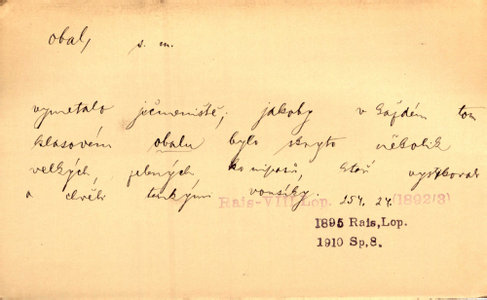 obal, s. m.
vymetalo ječmeniště; jakoby v každém tom
klasovém obalu bylo skryto několik
velkých, zelených komárů, kteří vystrkovali
a chvěli tenkými vousíky.
Rais-VIII Lop. 254. 24. (1892/3)
1895 Rais, Lop.
1910 Sp,8.